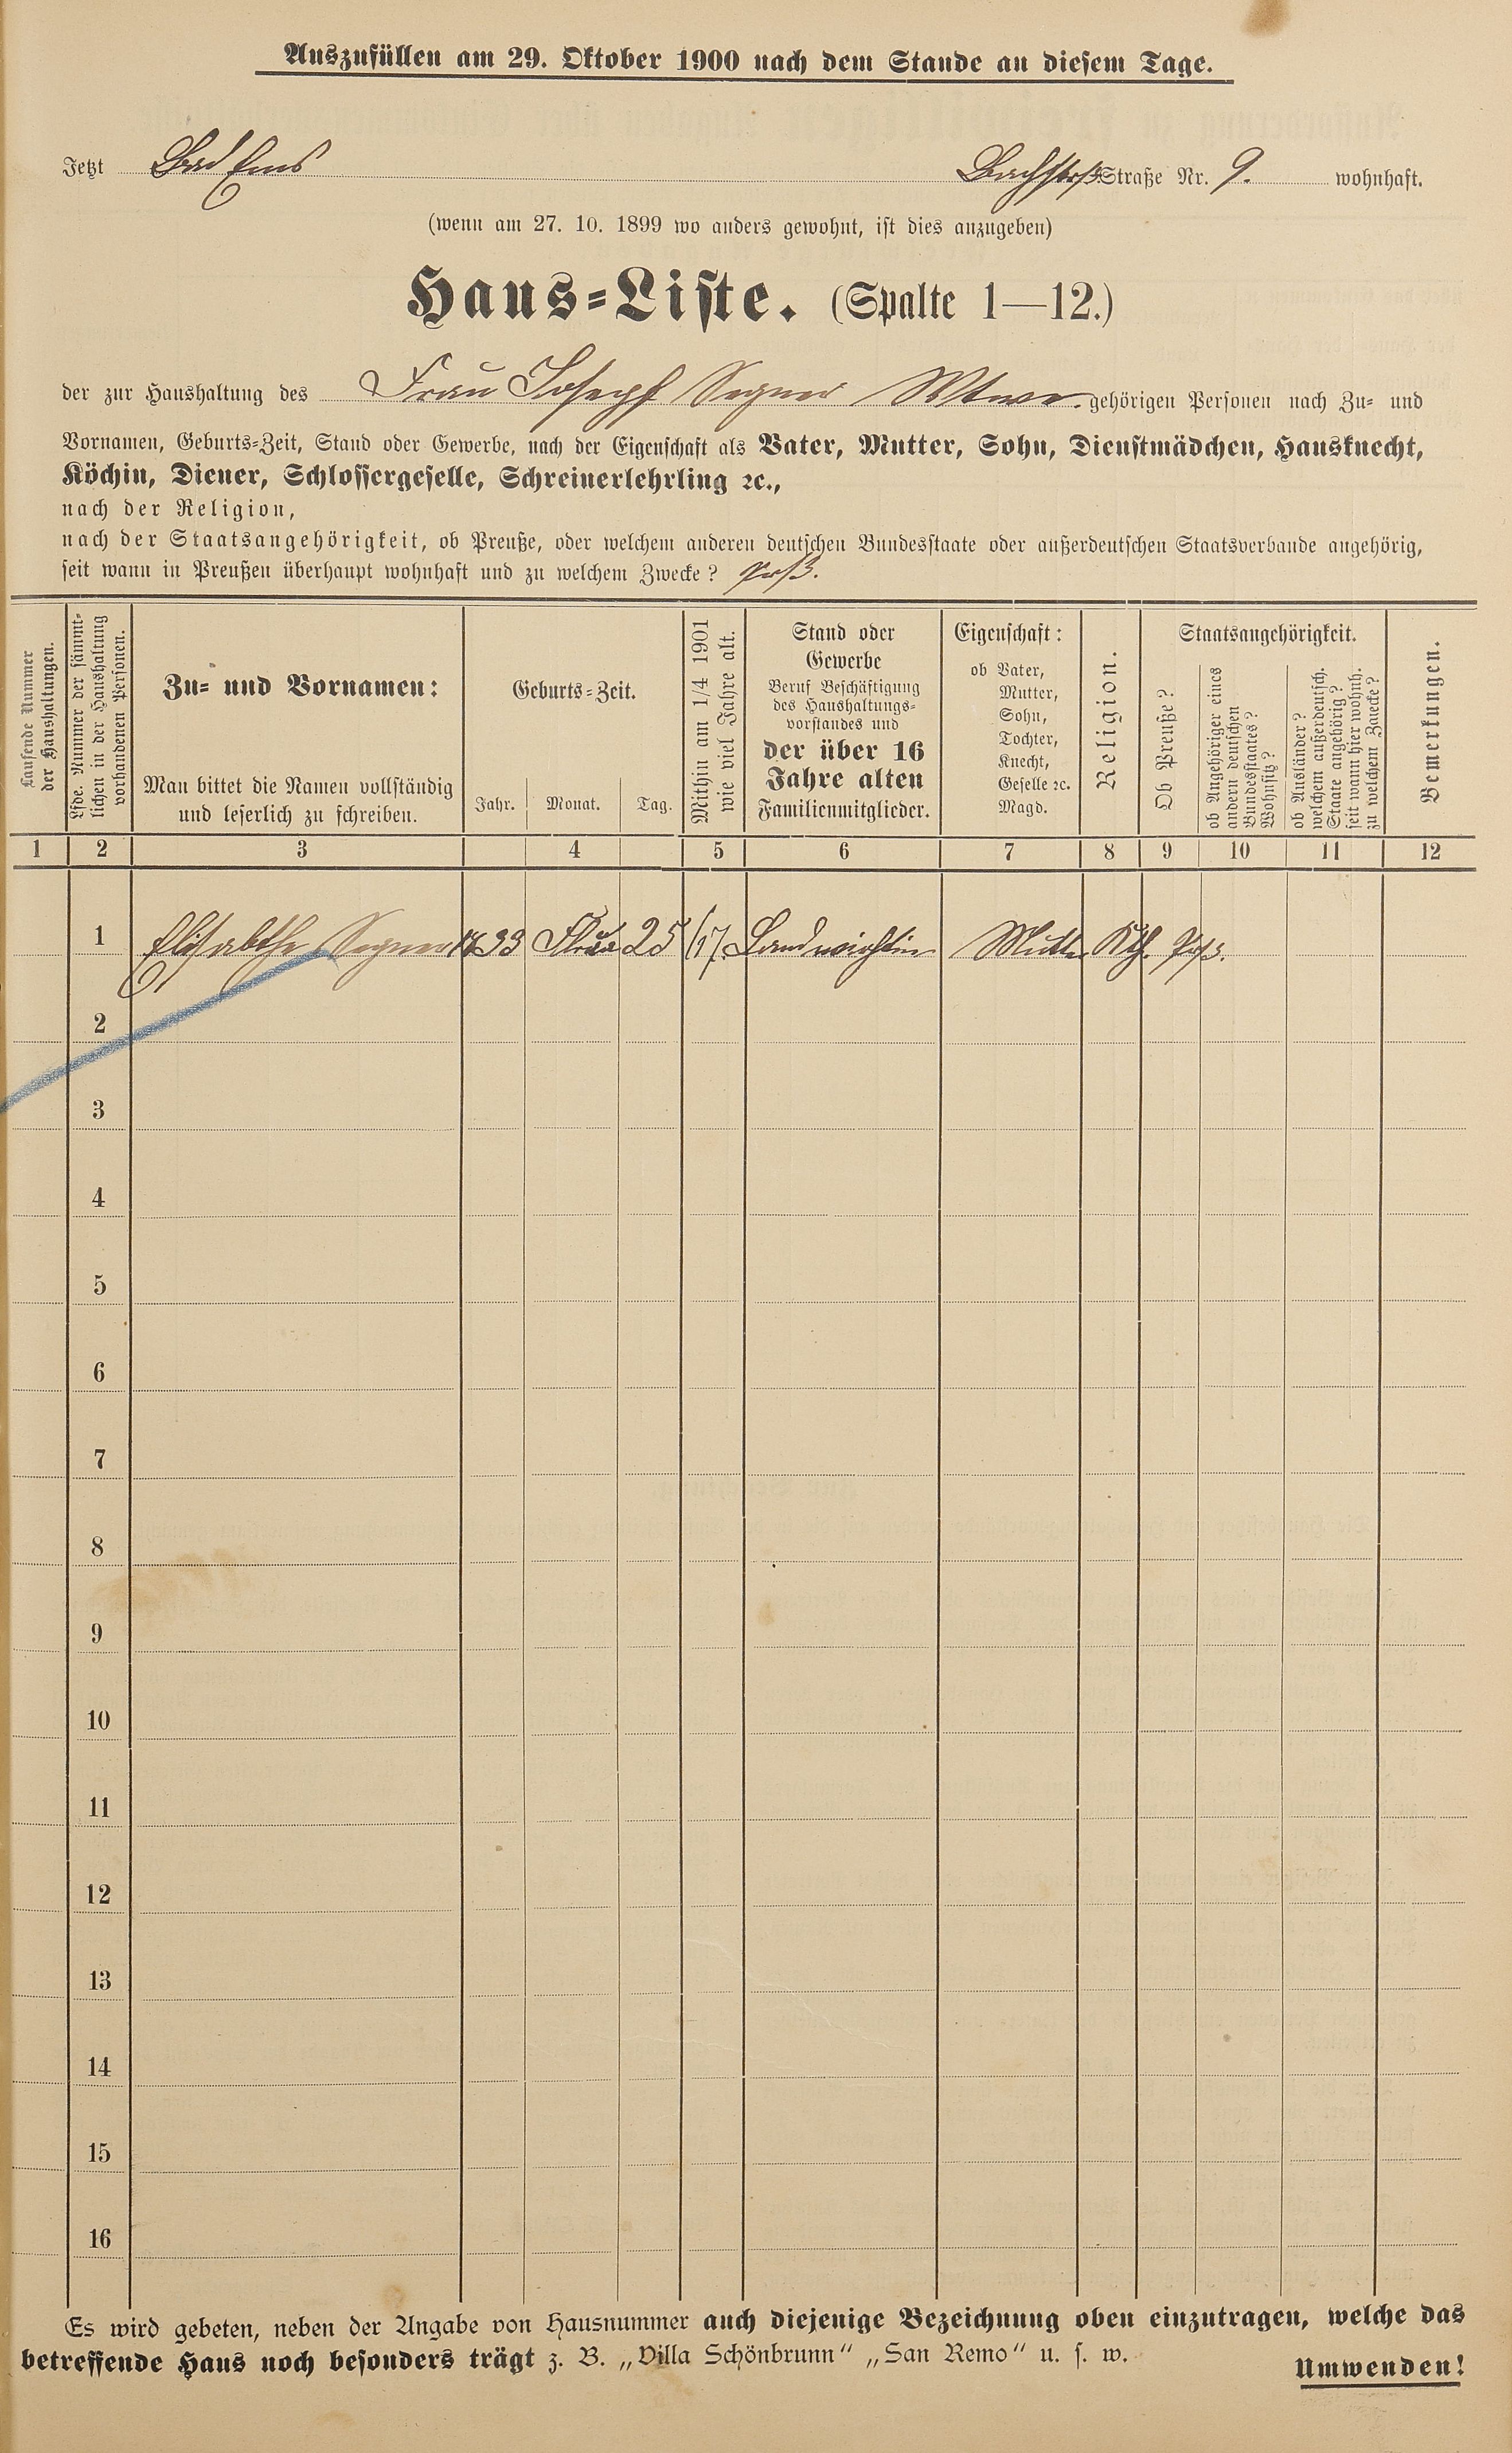 Auszufüllen am 29. Oktober 1900 nach dem Stande an diesem Tage.
Jetzt Bad Ems Bachstrß. Straße Nr. 9. wohnhaft.
(wenn am 27. 10. 1899 wo anders gewohnt, ist dies anzugeben)
Haus-Liste. (Spalte 1—12.)
der zur Haushaltung des Frau Joseph Segner Wtwe. gehörigen Personen nach Zu- und
Vornamen, Geburts-Zeit, Stand oder Gewerbe, nach der Eigenschaft als Vater, Mutter, Sohn, Dienstmädchen, Hausknecht,
Köchin, Diener, Schlossergeselle, Schreinerlehrling ꝛc.,
nach der Religion,
nach der Staatsangehörigkeit, ob Preuße, oder welchem anderen deutschen Bundesstaate oder außerdeutschen Staatsverbande angehörig,
seit wann in Preußen überhaupt wohnhaft und zu welchem Zwecke? Prß.
Laufende Nummer
der Haushaltungen.
Lfde. Nummer der sämmt-
lichen in der Haushaltung
vorhandenen Personen.
Zu- und Vornamen:
Man bittet die Namen vollständig
und leserlich zu schreiben.
Geburts-Zeit.
Jahr. Monat. Tag.
Mithin am 1/4 1901
wie viel Jahre alt.
Stand oder
Gewerbe
Beruf Beschäftigung
des Haushaltungs-
vorstandes und
der über 16
Jahre alten
Familienmitglieder.
Eigenschaft:
ob Vater,
Mutter,
Sohn,
Tochter,
Knecht,
Geselle ꝛc.
Magd.
Religion.
Staatsangehörigkeit.
Ob Preuße?
ob Angehöriger eines
andern deutschen
Bundesstaates?
Wohnsitz?
ob Ausländer?
welchem außerdeutsch.
Staate angehörig?
seit wann hier wohnh.
zu welchem Zwecke?
Bemerkungen.
1 2 3 4 5 6 7 8 9 10 11 12
1 Elisabethe Segner 1833 25 67. Landwirthin Mutter Kth. Prß.
2
3
4
5
6
7
8
9
10
11
12
13
14
15
16
Es wird gebeten, neben der Angabe von Hausnummer auch diejenige Bezeichnung oben einzutragen, welche das
betreffende Haus noch besonders trägt z. B. „Villa Schönbrunn“ „San Remo“ u. s. w.
Umwenden!